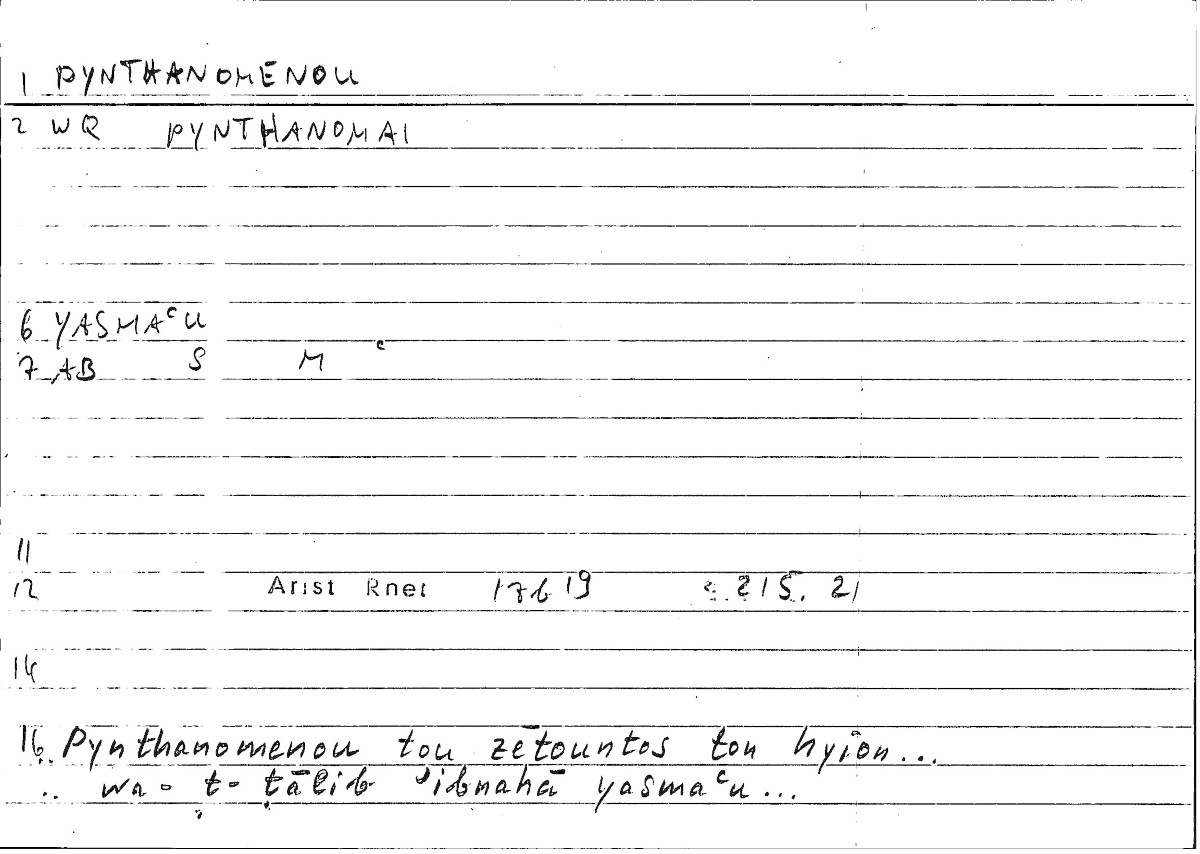 1 PYNTHANOMENOU
2 WQ PYNTHANOMAI
6 YASMAᶜU
7 AB S M ᶜ
11
12 Arist Rhet 17b19 215.21
14
16 Pynthanomenou tou zētountos ton hyion...
.. wa-ṭ-ṭālib ʾibnahā yasmaᶜu...